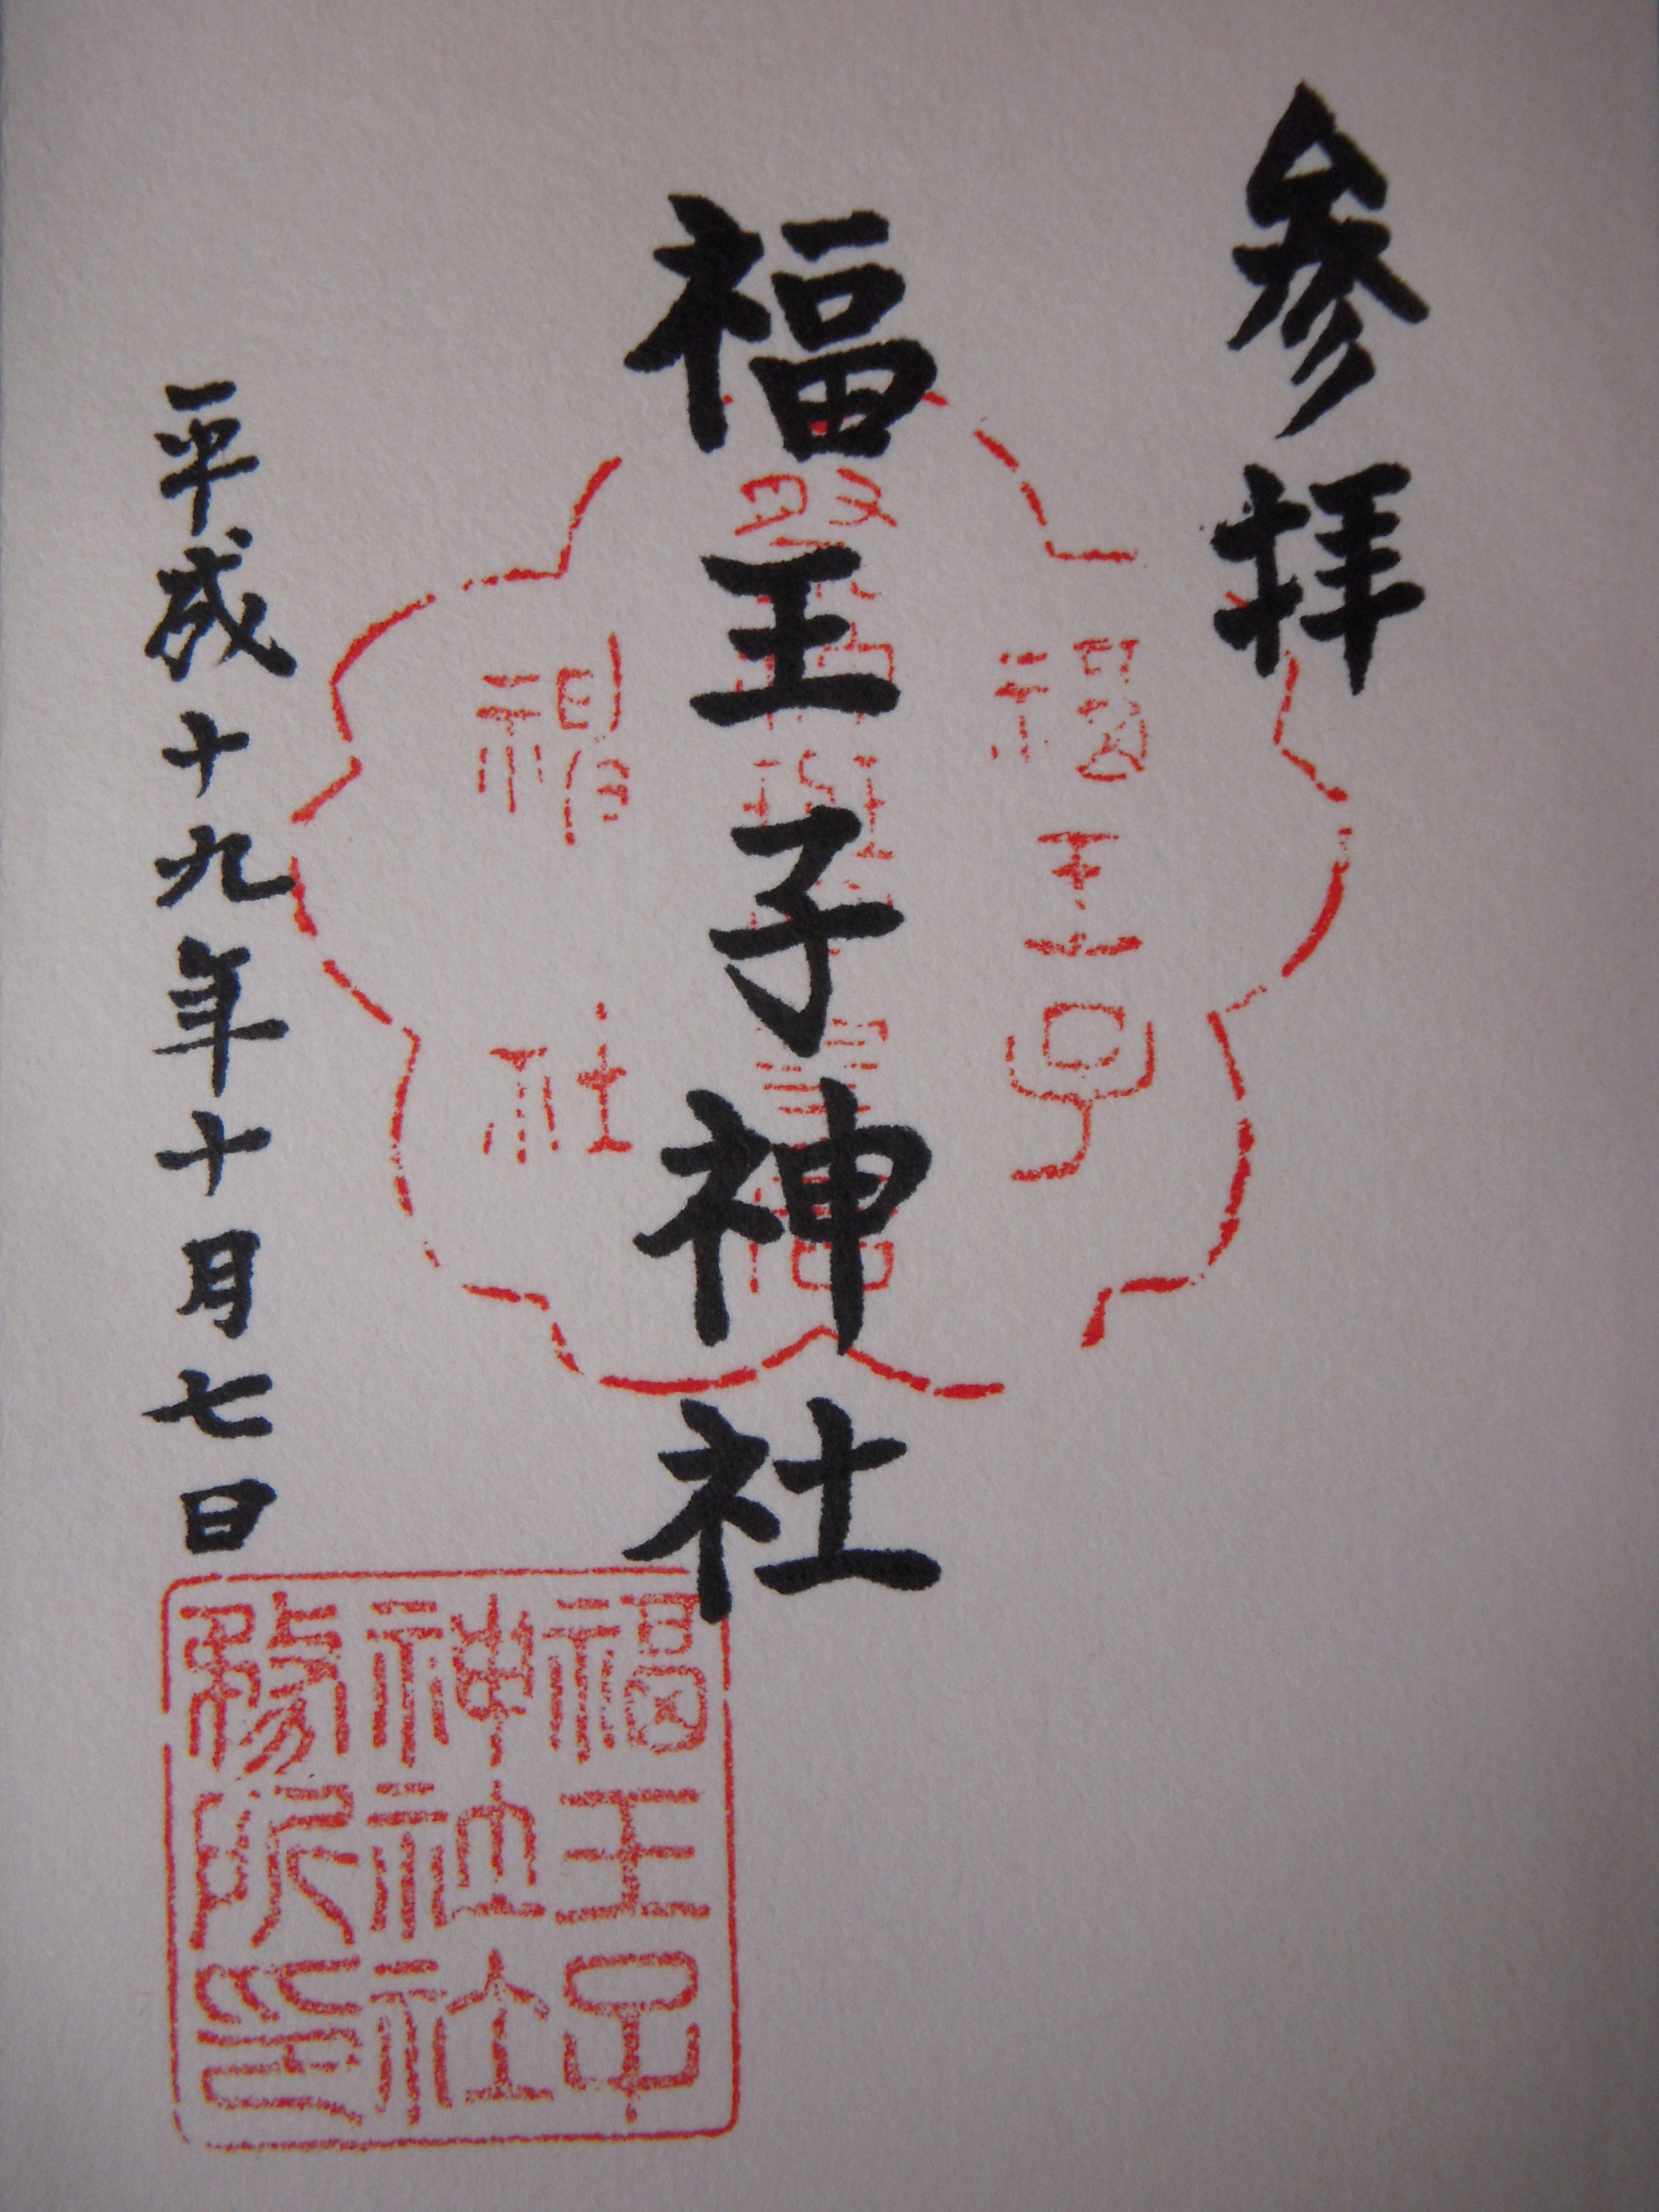 参拝
福王子神社
平成十九年十月七日
福王子
神社
福王子
神社社
務所印